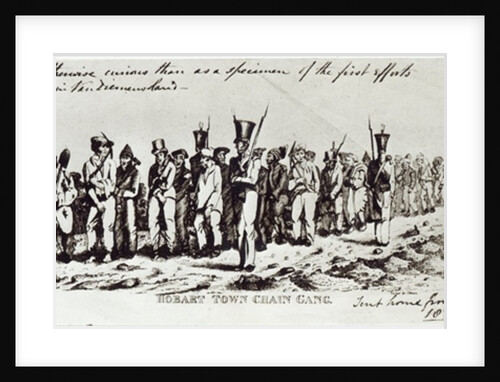 curious than as a specimen of the first efforts
in Van Diemensland —
HOBART TOWN CHAIN GANG.
Sent home
18